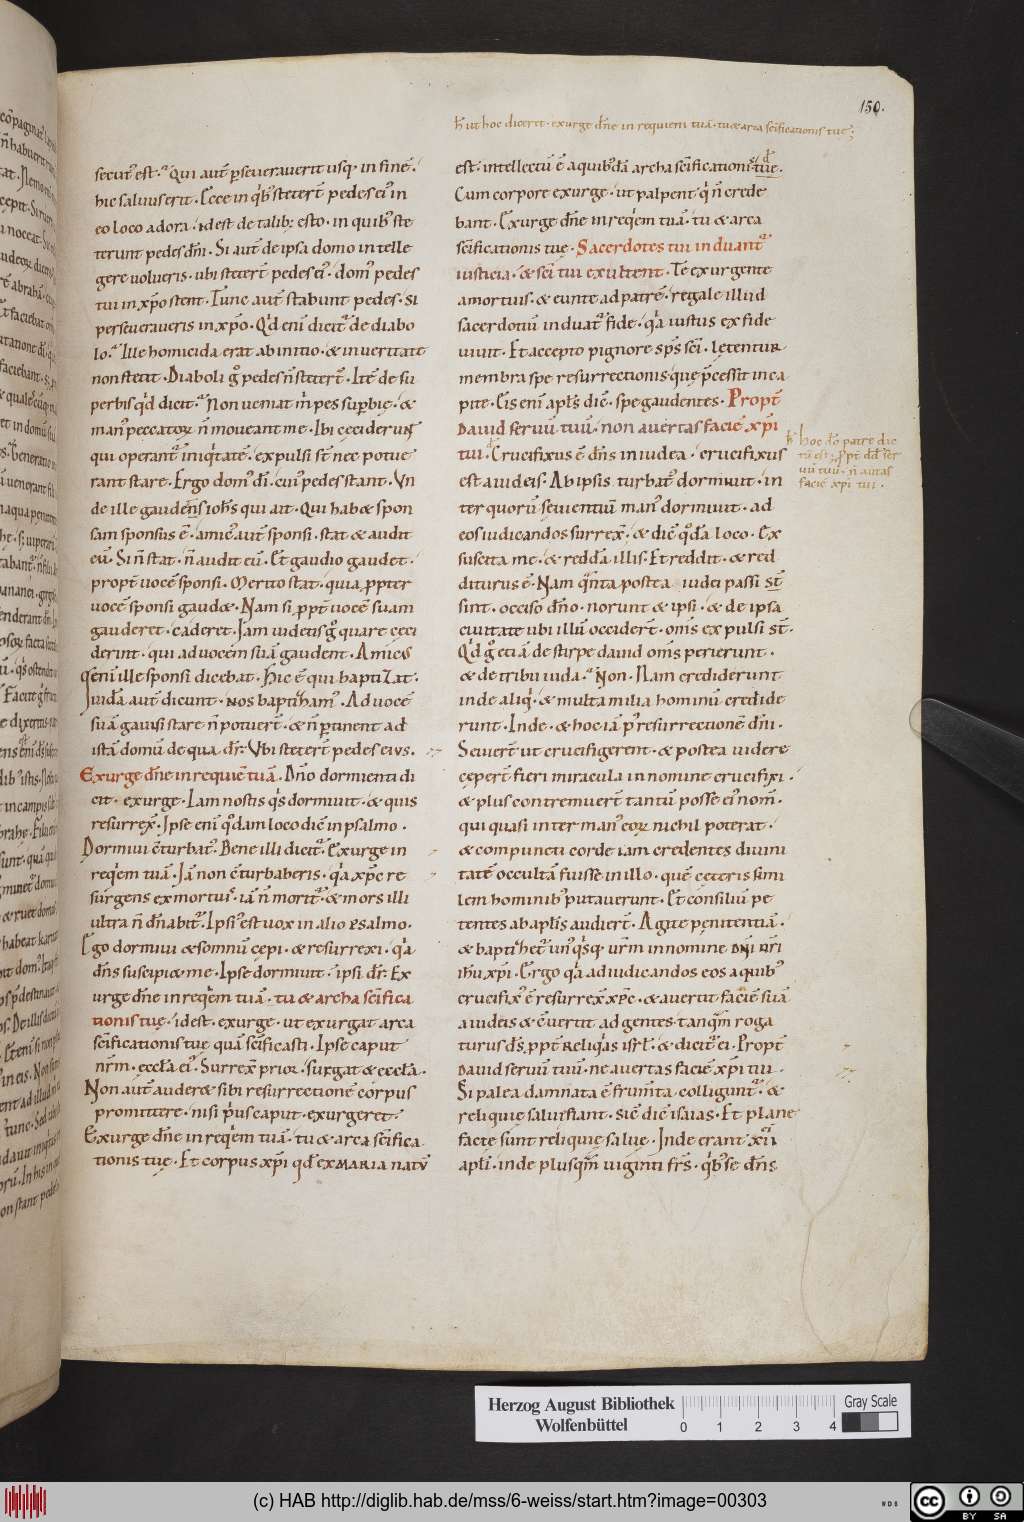 150.
h ut hoc diceret · exurge dñe in requiem tuā · tu & arca scīficationis tuę ;
secut᾽ est · Qui aut̄ pseueraverit usq; in finē ·
hic saluus erit · Ecce in q̇b; steter̄t pedes ei᾽ in
eo loco adora · idest de talib; esto · in quib; ste
terunt pedes dn̄i · Si aut̄ de ipsa domo intelle
gere uolueris · ubi steter̄t pedes ei᾽ · dom᾽ pedes
tui in xp̄o stent · Tunc aut̄ stabunt pedes · si
perseueraueris in xp̄o · Q᾽d eni᾽ dicit᾽ de diabo
lo · Ille homicida erat ab initio · & in ueritate
non stetit · Diaboli g̊ pedes n̄ steter̄t · Itē de su
perbis q᾽d dicit · Non ueniat m̄ pes supbię · &
man᾽ peccator᾽ n̄ moueant me · Ibi ceciderunt
qui operant᾽ iniq᾽tatē · expulsi st̄ nec potue
rant stare · Ergo dom᾽ dī · cui᾽ pedes stant · Vn
de ille gaudens ioh̄s qui ait · Qui hab& spon
sam sponsus ē · amic᾽ aut̄ sponsi · stat & audit
eū · Si n̄ stat · n̄ audit eū · Et gaudio gaudet ·
propt̄ uocē sponsi · Merito stat · quia ppter
uocē sponsi gaud& · Nam si ppt̄ uocē suam
gauderet · caderet · Jam uidetis g̊ quare ceci
derint · qui ad uocem suā gaudent · Amicus
q᾽ eni᾽ ille sponsi dicebat · Hic ē qui baptizat ·
Juidā aut̄ dicunt · nos baptizam᾽ · Ad uocē
suā gauisi stare n̄ potuer̄t · & n̄ ptinent ad
istā domū de qua dr̄ · Vbi steter̄t pedes eius ·
Exurge dn̄e in requiē tuā · Dn̄o dormienti di
cit · exurge · Iam nostis q᾽s dormiuit · & quis
resurrex̄ · Ipse eni᾽ q᾽dam loco dic̄ in psalmo ·
Dormiui cturbat᾽ · Bene illi dicit᾽ · Exurge in
req᾽em tuā · Jā non cturbaberis · q᾽a xp̄c re
surgens ex mortuis · iā n̄ morit᾽ · & mors illi
ultra n̄ dn̄abit᾽ · Ipsi᾽ est uox in alio psalmo ·
Ego dormiui & somnū cepi · & resurrexi · q᾽a
dn̄s suscipi& me · Ipse dormiuit · ipsi dr̄ · Ex
urge dn̄e in req᾽em tuā · tu & archa scīfica
tionis tuę · idest · exurge · ut exurgat arca
scīficationis tuę quā scīficasti · Ipse caput
nr̄m · ecclā ei᾽ · Surrex̄ prior · surgat & ecclā ·
Non aut̄ auder& sibi resurrectionē corpus
promittere · nisi p᾽us caput · exurgeret ·
Exurge dn̄e in req᾽em tuā · tu & arca scīfica
tionis tuę · Et corpus xp̄i qd̄ ex maria natū
est · intellectū ē a quib᾽dā archa scīficationis tuę ·
Cum corpore exurge · ut palpent q᾽ n̄ crede
bant · Exurge dn̄e in req᾽em tuā · tu & arca
scīficationis tuę · Sacerdotes tui induant᾽
iusticia · & scī tui exultent · Te exurgente
a mortuis · & eunte ad patrē · regale illud
sacerdotiū induat᾽ fide · q᾽a iustus ex fide
uiuit · Et accepto pignore sp̄s scī · lętentur
membra spe resurrectionis · quę p̄cessit in ca
pite · Cis eni᾽ apl̄s dic̄ · spe gaudentes · Propt̄
dauid seruū tuū · non auertas faciē xp̄i
tui · Crucifixus ē dn̄s in iudea · crucifixus
est a iudeis · Ab ipsis turbat᾽ dormiuit · in
ter quorū seuientiū man᾽ dormiuit · ad
eos iudicandos surrex̄ · & dic̄ q᾽dā loco · Ex
suscita me · & reddā illis · Et reddit · & red
diturus ē · Nam q᾽nta postea iudei passi st̄
sint · occiso dn̄o · norunt & ipsi · & de ipsa
ciuitate ubi illū occider̄t · om̄s expulsi st̄ ·
Q᾽d g̊ etiā de stirpe dauid om̄s perierunt ·
& de tribu iuda · Non · Nam crediderunt
inde aliq᾽ · & multa milia hominū credide
runt · Inde · & hoc iā p᾽ resurrectionē dn̄i ·
Seuier̄t ut crucifigerent · & postea uidere
ceper̄t fieri miracula in nomine crucifixi ·
& plus contremuer̄t tantū posse ei᾽ nom̄ ·
qui quasi inter man᾽ eor᾽ nichil poterat ·
& compuncti corde iam credentes diuini
tatē occultā fuisse in illo · quē ceteris simi
lem hominib; putauerunt · Et consiliū pe
tentes ab apl̄is audier̄t · Agite penitentiā ·
& baptizet᾽ un᾽q᾽sq; ur̄m in nomine dn̄i nr̄i
ih̄u xp̄i · Ergo q᾽a ad iudicandos eos a quib;
crucifix᾽ ē resurrex̄ xp̄c · & auertit faciē suā
a iudeis & cuertit ad gentes · tanq᾽m roga
turus dī ppt̄ reliq᾽as isrl̄ · & dicit᾽ ei · Propt̄
dauid seruū tuū · ne auertas faciē xp̄i tui ·
Si palea damnata ē frum̄ta colligunt᾽ · &
reliquię saluę fiant · Sic̄ dic̄ isaias · Et plane
factę sunt reliquię saluę · Inde erant xii
apl̄i · inde plusq᾽m uiginti fr̄s · q᾽b; se dn̄s
hoc dō patre dic
tū est · ppt̄ dd̄ ser
uū tuū · n̄ auertas
faciē xp̄i tui ·
Herzog August Bibliothek
Wolfenbüttel
0 1 2 3 4
Gray Scale
(c) HAB http://diglib.hab.de/mss/6-weiss/start.htm?image=00303
cc BY SA